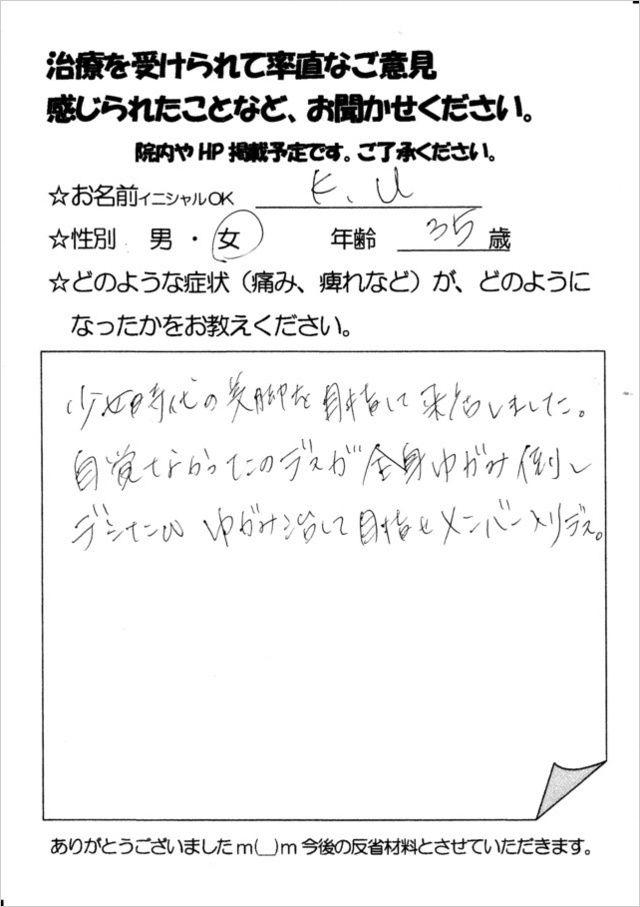 治療を受けられて率直なご意見
感じられたことなど、お聞かせください。
院内やHP掲載予定です。ご了承ください。
☆お名前イニシャルOK K、U
☆性別 男・女 年齢 35歳
☆どのような症状（痛み、痺れなど）が、どのように
なったかをお教えください。
少女時代の美脚を目指して来店しました。
自覚なかったのデスが全身ゆがみ
デシたが ゆがみ治して目指せメンバー入りデス。
ありがとうございましたm(__)m今後の反省材料とさせていただきます。